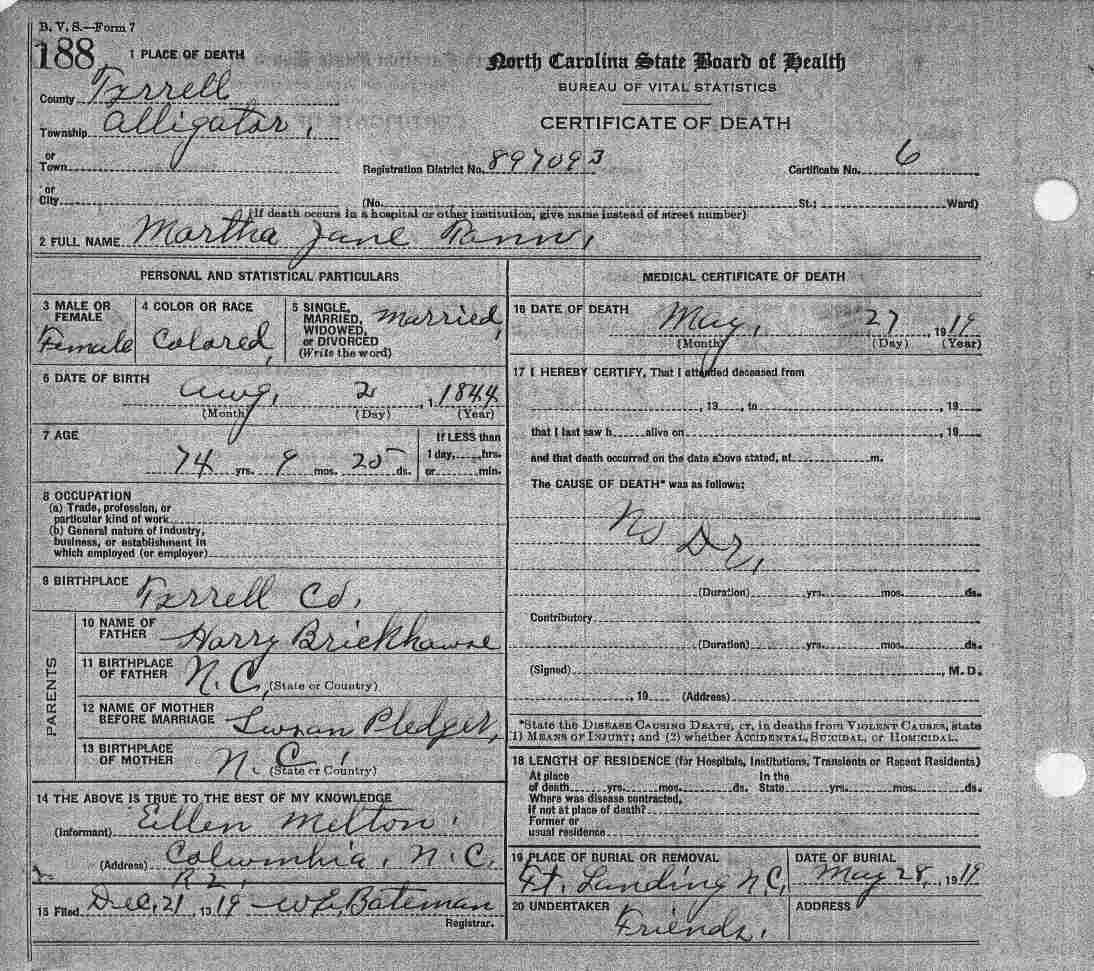 B. V. S.—Form 7
188
1 PLACE OF DEATH
North Carolina State Board of Health
BUREAU OF VITAL STATISTICS
CERTIFICATE OF DEATH
County Tyrrell
Township Alligator,
or
Town
Registration District No. 897093
Certificate No. 6
or
City
(No. St.; Ward)
(If death occurs in a hospital or other institution, give name instead of street number)
2 FULL NAME Martha Jane
PERSONAL AND STATISTICAL PARTICULARS
3 MALE OR FEMALE
Female
4 COLOR OR RACE
Colored,
5 SINGLE, MARRIED, WIDOWED, or DIVORCED
(Write the word)
Married,
6 DATE OF BIRTH
Aug, 2, 1844
(Month) (Day) (Year)
7 AGE
74 yrs. 9 mos. 25 ds.
If LESS than
1 day, hrs.
or min.
8 OCCUPATION
(a) Trade, profession, or
particular kind of work
(b) General nature of Industry,
business, or establishment in
which employed (or employer)
9 BIRTHPLACE Tyrrell Co,
PARENTS
10 NAME OF FATHER Harry Brickhouse
11 BIRTHPLACE OF FATHER N. C,
(State or Country)
12 NAME OF MOTHER BEFORE MARRIAGE Susan Pledger,
13 BIRTHPLACE OF MOTHER N. C,
(State or Country)
14 THE ABOVE IS TRUE TO THE BEST OF MY KNOWLEDGE
(Informant) Ellen Melton,
(Address) Columbia, N. C.
R 2,
15 Filed Dec, 21 1919 W E, Bateman
Registrar.
MEDICAL CERTIFICATE OF DEATH
16 DATE OF DEATH
May, 27 1919
(Month) (Day) (Year)
17 I HEREBY CERTIFY, That I attended deceased from
, 19 , to , 19
that I last saw h alive on , 19
and that death occurred on the date above stated, at m.
The CAUSE OF DEATH* was as follows:
No Dr,
(Duration) yrs. mos. ds.
Contributory
(Duration) yrs. mos. ds.
(Signed) , M. D.
, 19 (Address)
*State the DISEASE CAUSING DEATH, or, in deaths from VIOLENT CAUSES, state
1) MEANS OF INJURY; and (2) whether ACCIDENTAL, SUICIDAL, or HOMICIDAL.
18 LENGTH OF RESIDENCE (for Hospitals, Institutions, Transients or Recent Residents)
At place of death yrs. mos. ds. In the State yrs. mos. ds.
Where was disease contracted,
If not at place of death?
Former or
usual residence
19 PLACE OF BURIAL OR REMOVAL
Ft. Landing N. C,
DATE OF BURIAL
May 28, 1919
20 UNDERTAKER
Friends,
ADDRESS